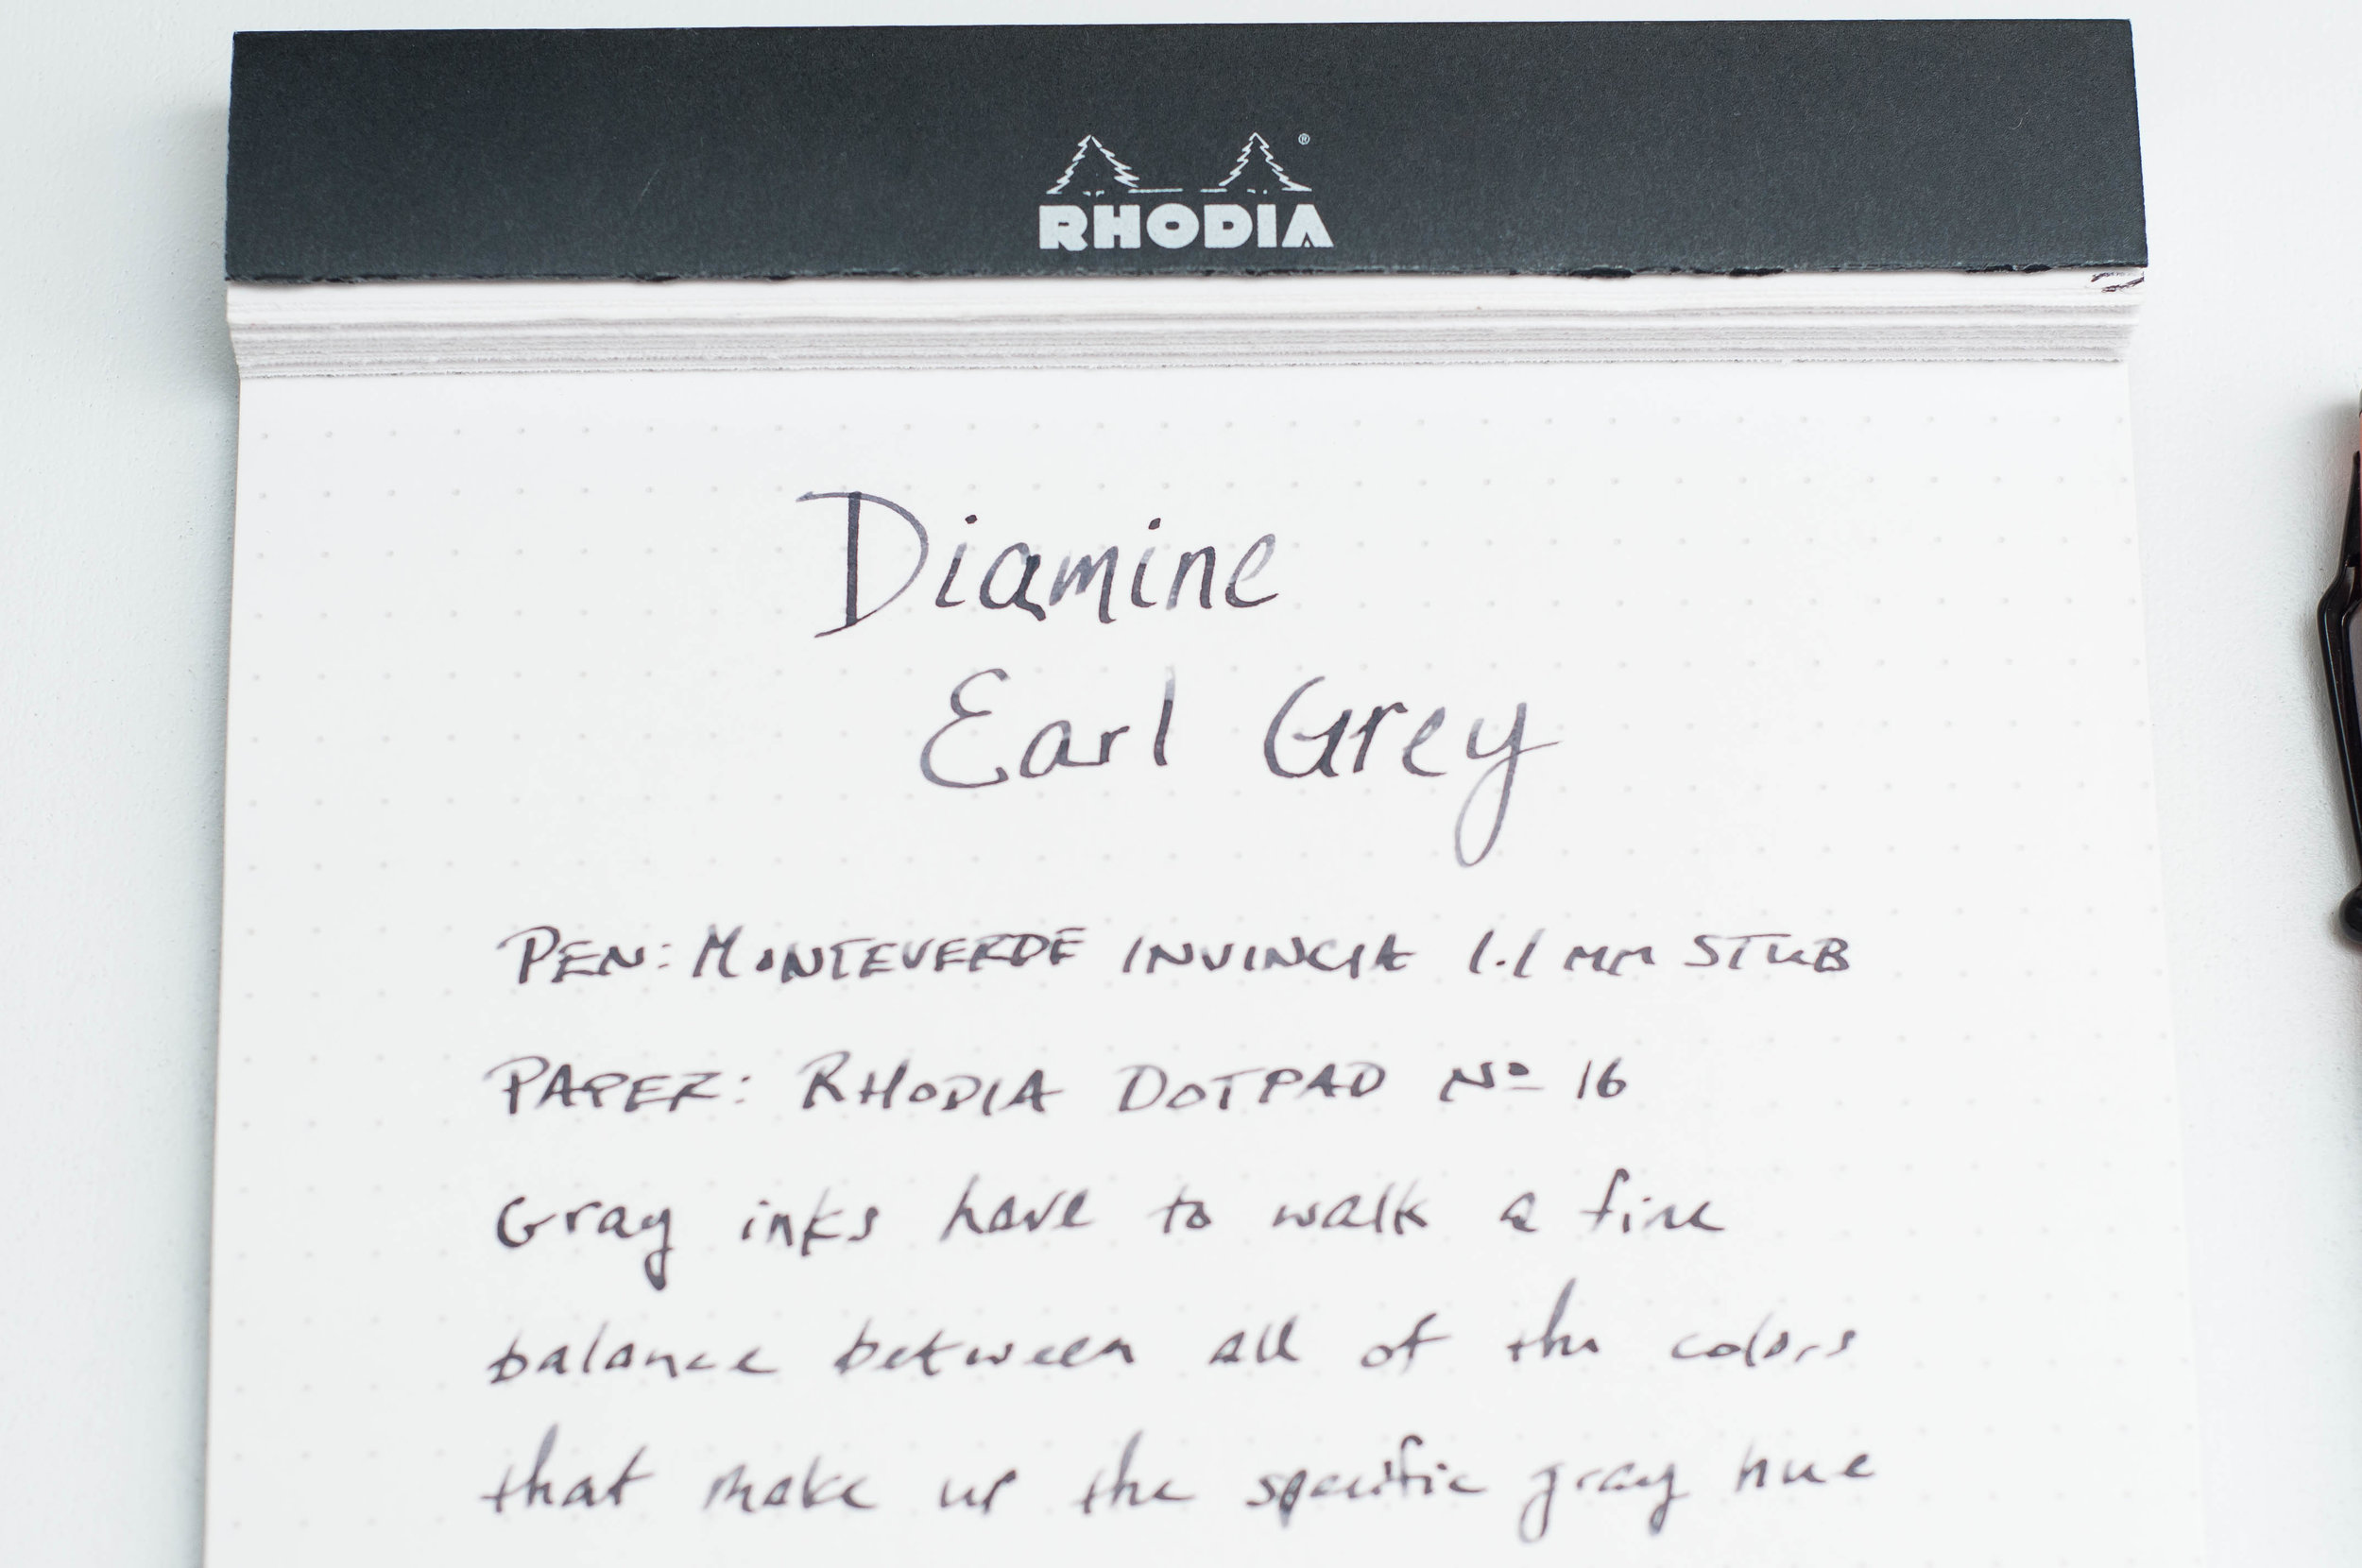 RHODIA
Diamine
Earl Grey
PEN: MONTEVERDE INVINCIA 1.1 MM STUB
PAPER: RHODIA DOTPAD Nº 16
Gray inks have to walk a fine
balance between all of the colors
that make up the specific gray hue